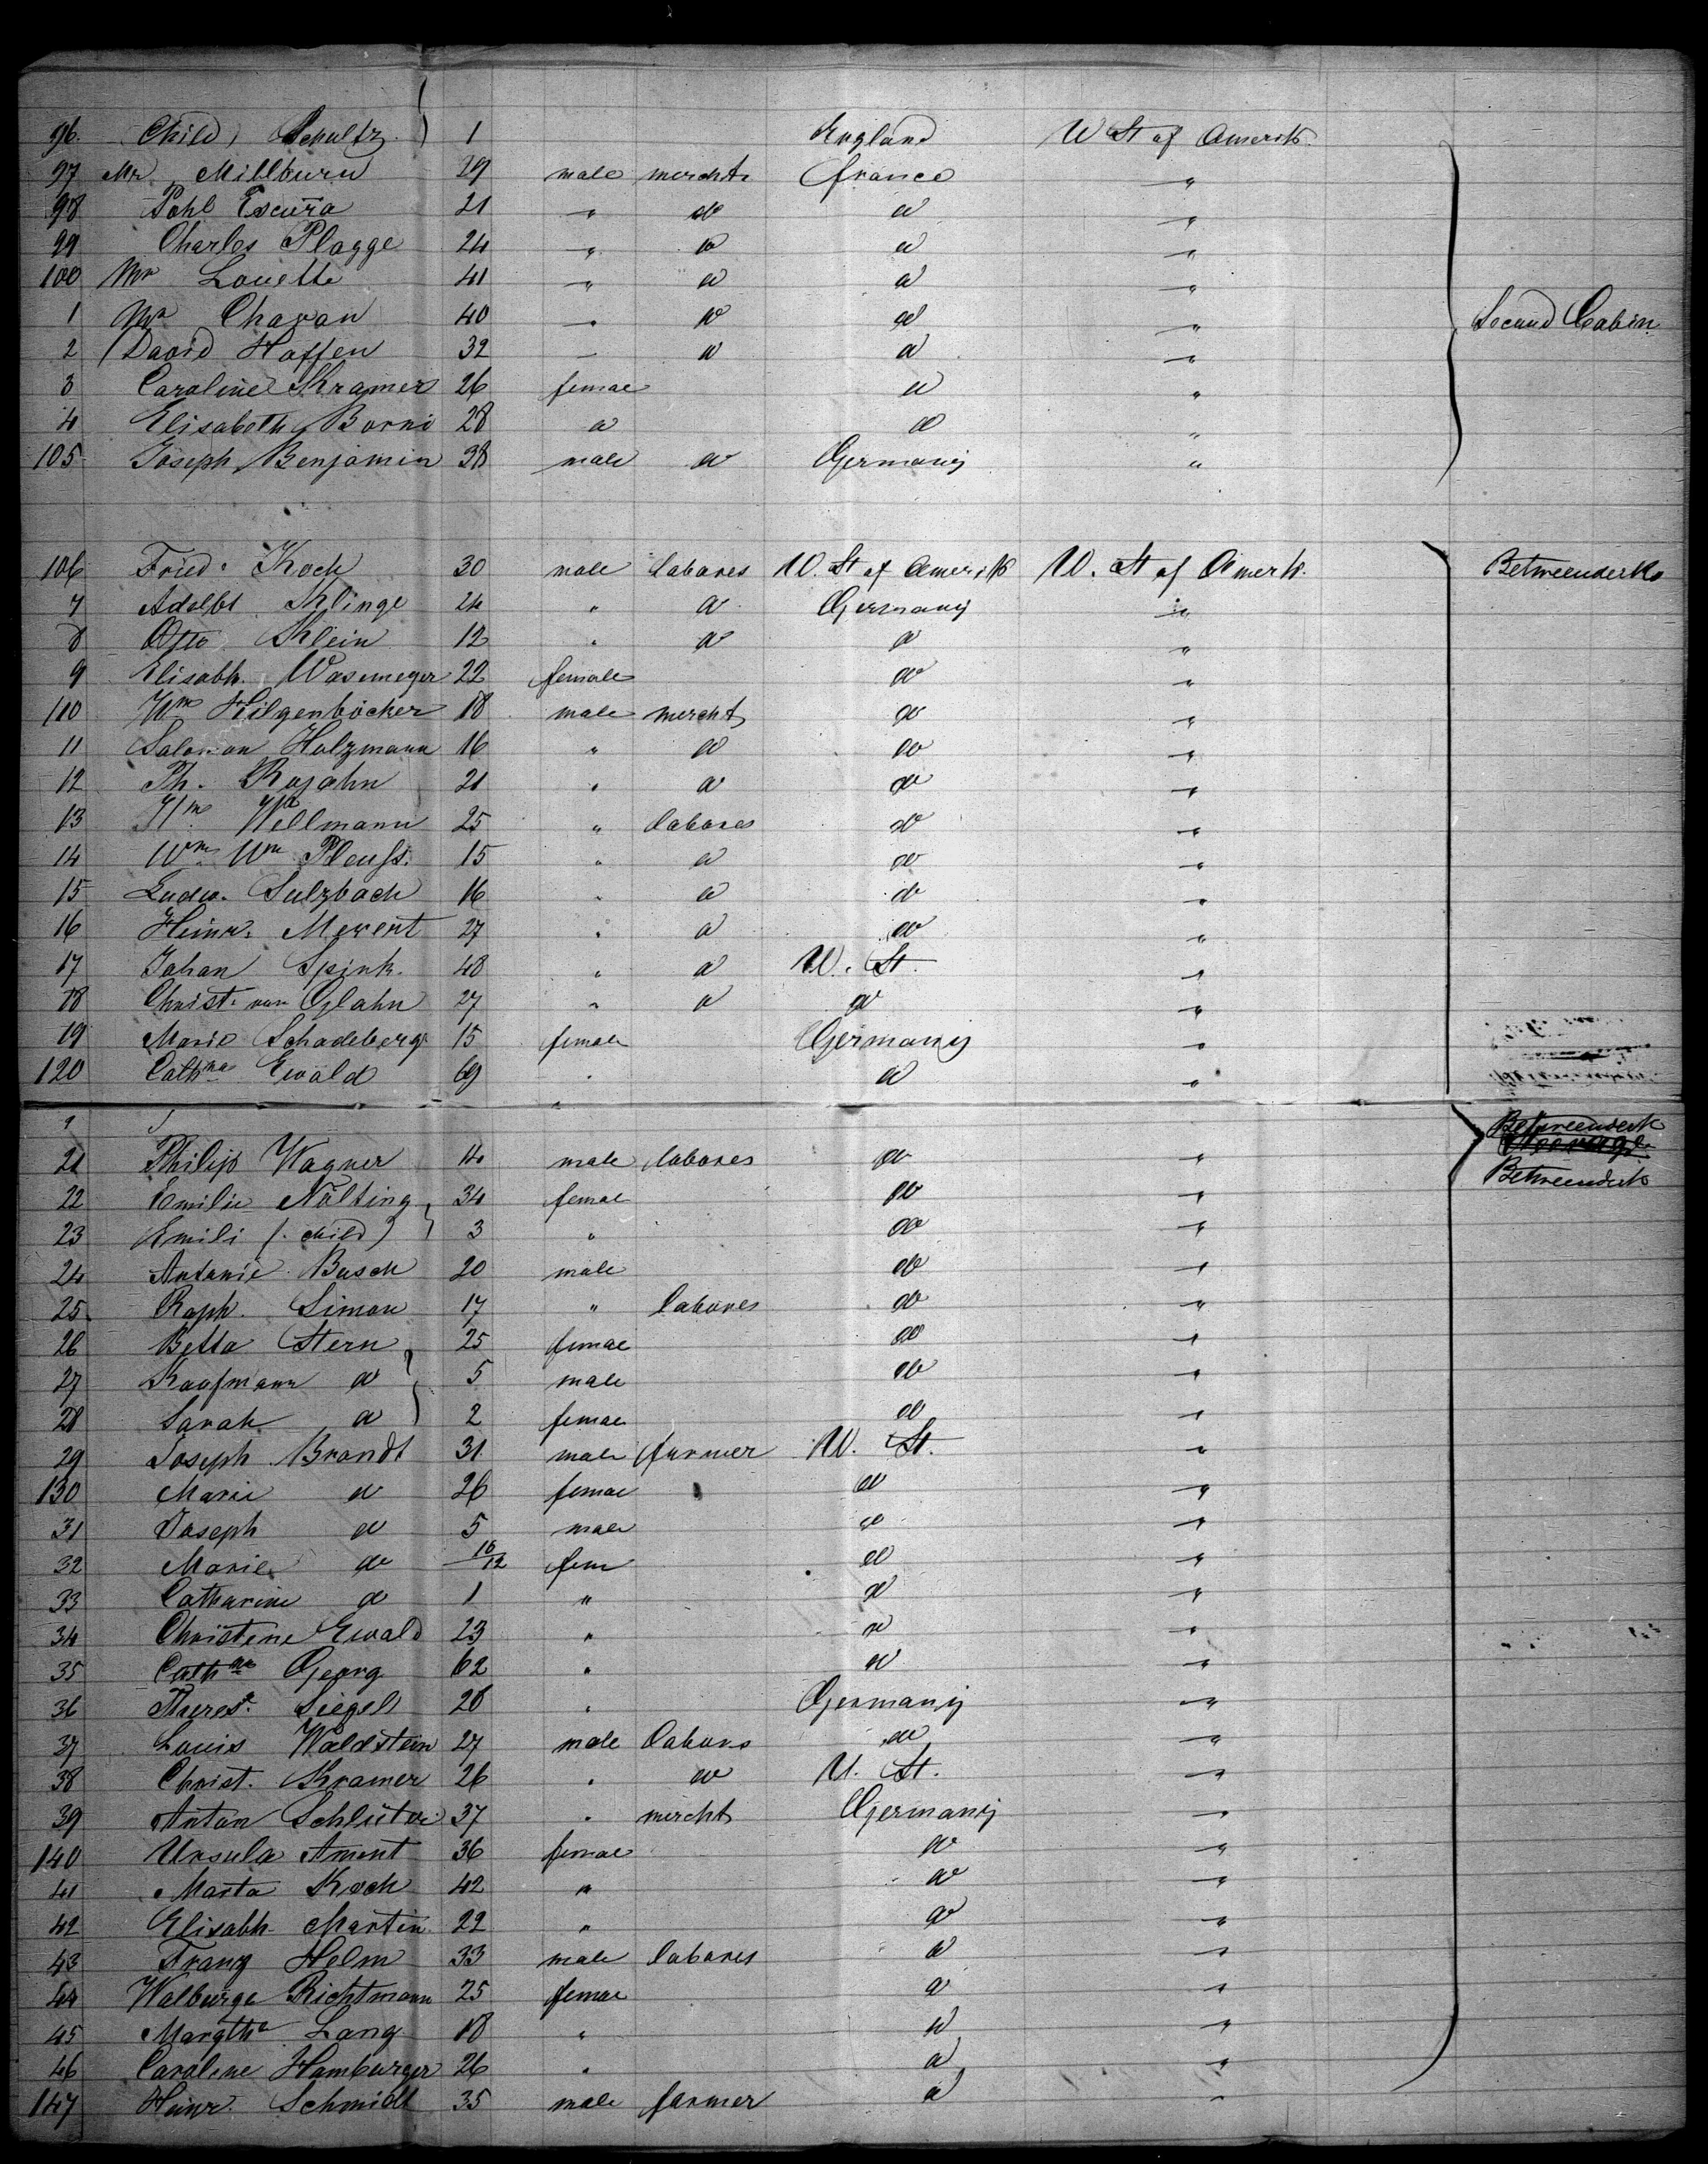 96. Child, Schultz. 1 England U St of Amerik.
97 Mr Millburn 29 male mercht. France "
98 Pohl Escura 21 " do do "
99 Charles Plagge 24 " do do "
100 Mr Louette 41 " do do "
1 Mr Chavan 40 " do do " Second Cabin
2 David Haffen 32 " do do "
3 Caroline Kramer 26 femae do "
4 Elisabeth Borni 28 do do "
105 Joseph Benjamin 38 male do Germany "
106 Fried. Koch 30 male labores U. St of Amerik U. St of Amerk. Betweendeck
7 Adolbt Klinge 24 " do Germany "
8 Otto Klein 12 " do do "
9 Elisabh. Wasemeyer 22 female do "
110 Wm Hilgenböcker 18 male mercht do "
11 Salomon Holzmann 16 " do do "
12 Ph. Rojahn 21 " do do "
13 Wm Wellmann 25 " labores do "
14 Wm Wm Pleuss. 15 " do do "
15 Ludw. Sulzbach 16 " do do "
16 Heinr. Mevert 27 " do do "
17 Johan Spink. 48 " do U. St. "
18 Christ. von Glahn 27 " do do "
19 Marie Schadeberg 15 female Germany "
120 Cathna Ewald 69 " do "
Betweendeck
21 Philip Wagner 14 male labores do " Betweendeck
22 Emilie Nölting 34 femae do "
23 Emili (. child) 3 " do "
24 Antonie Busch 20 male do "
25. Raph. Simon 17 " labores do "
26 Betta Stern 25 femae do "
27 Kaufmann do 5 male do "
28 Sarah do 2 femae do "
29 Joseph Brandt 31 male farmer U. St. "
130 Marie do 26 femae do "
31 Joseph do 5 male do "
32 Marie do 10/12 fem do "
33 Catharine do 1 " do "
34 Christene Ewald 23 " do "
35 Cathna Georg 62 " do "
36 Theres. Siegel 28 " Germany "
37 Louis Waldstein 27 male labores do "
38 Christ. Kramer 26 " do U. St. "
39 Anton Schlüter 37 " mercht Germany "
140 Ursula Ament 36 femae do "
41 Marta Koch 42 " do "
42 Elisabh. Martin 22 " do "
43 Franz Helm 33 male labores do "
44 Walburga Richtmann 25 femae do "
45 Margtha Lang 18 " do "
46 Caroline Hamburger 26 " do "
147 Heinr. Schmidt 35 male farmer do "